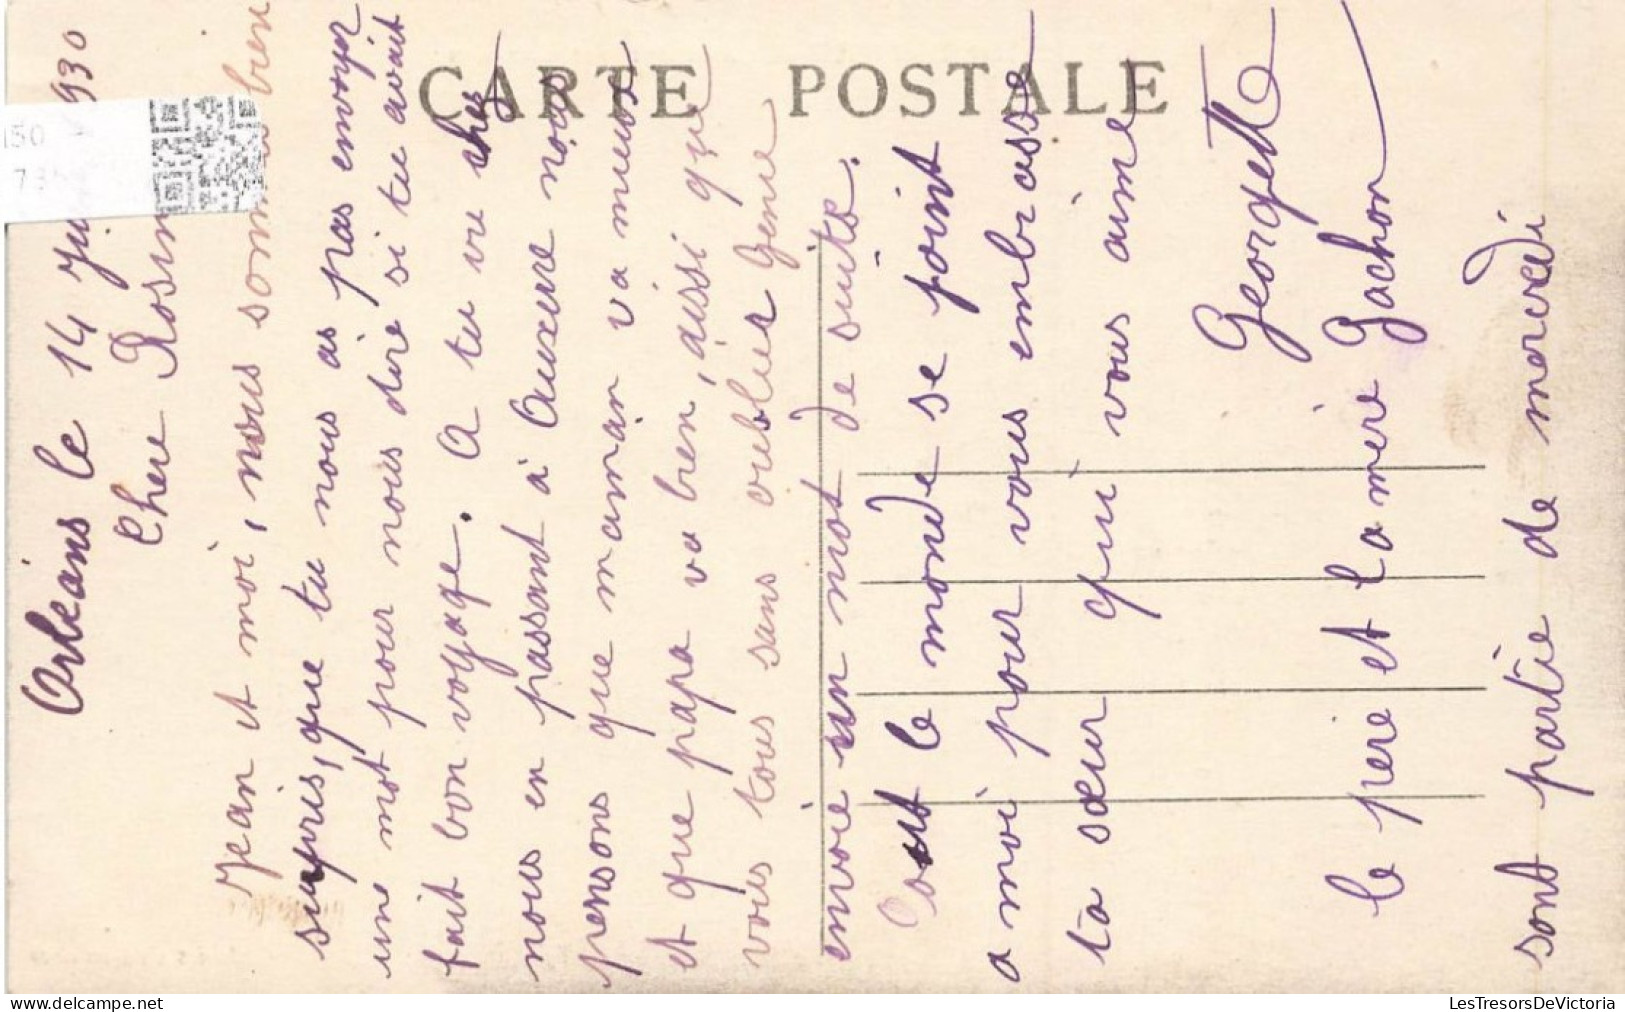 CARTE POSTALE
Orléans le 14 930
Chere
Jean et moi, nous bien
surpris, que tu nous as pas envoyer
une mot pour nous dire si tu avait
fait bon voyage. A tu vu chez
nous en passant à Auxerre nous
pensons que maman va mieux
et que papa va bien, aussi que
vous tous sans oublier Gène
envoie un mot de suite.
Tout le monde se joint
a moi pour vous embrasse
ta sœur qui vous aime
Georgette
le père et la mère Gachon
sont partie de mercredi
LesTresorsDeVictoria
www.delcampe.net